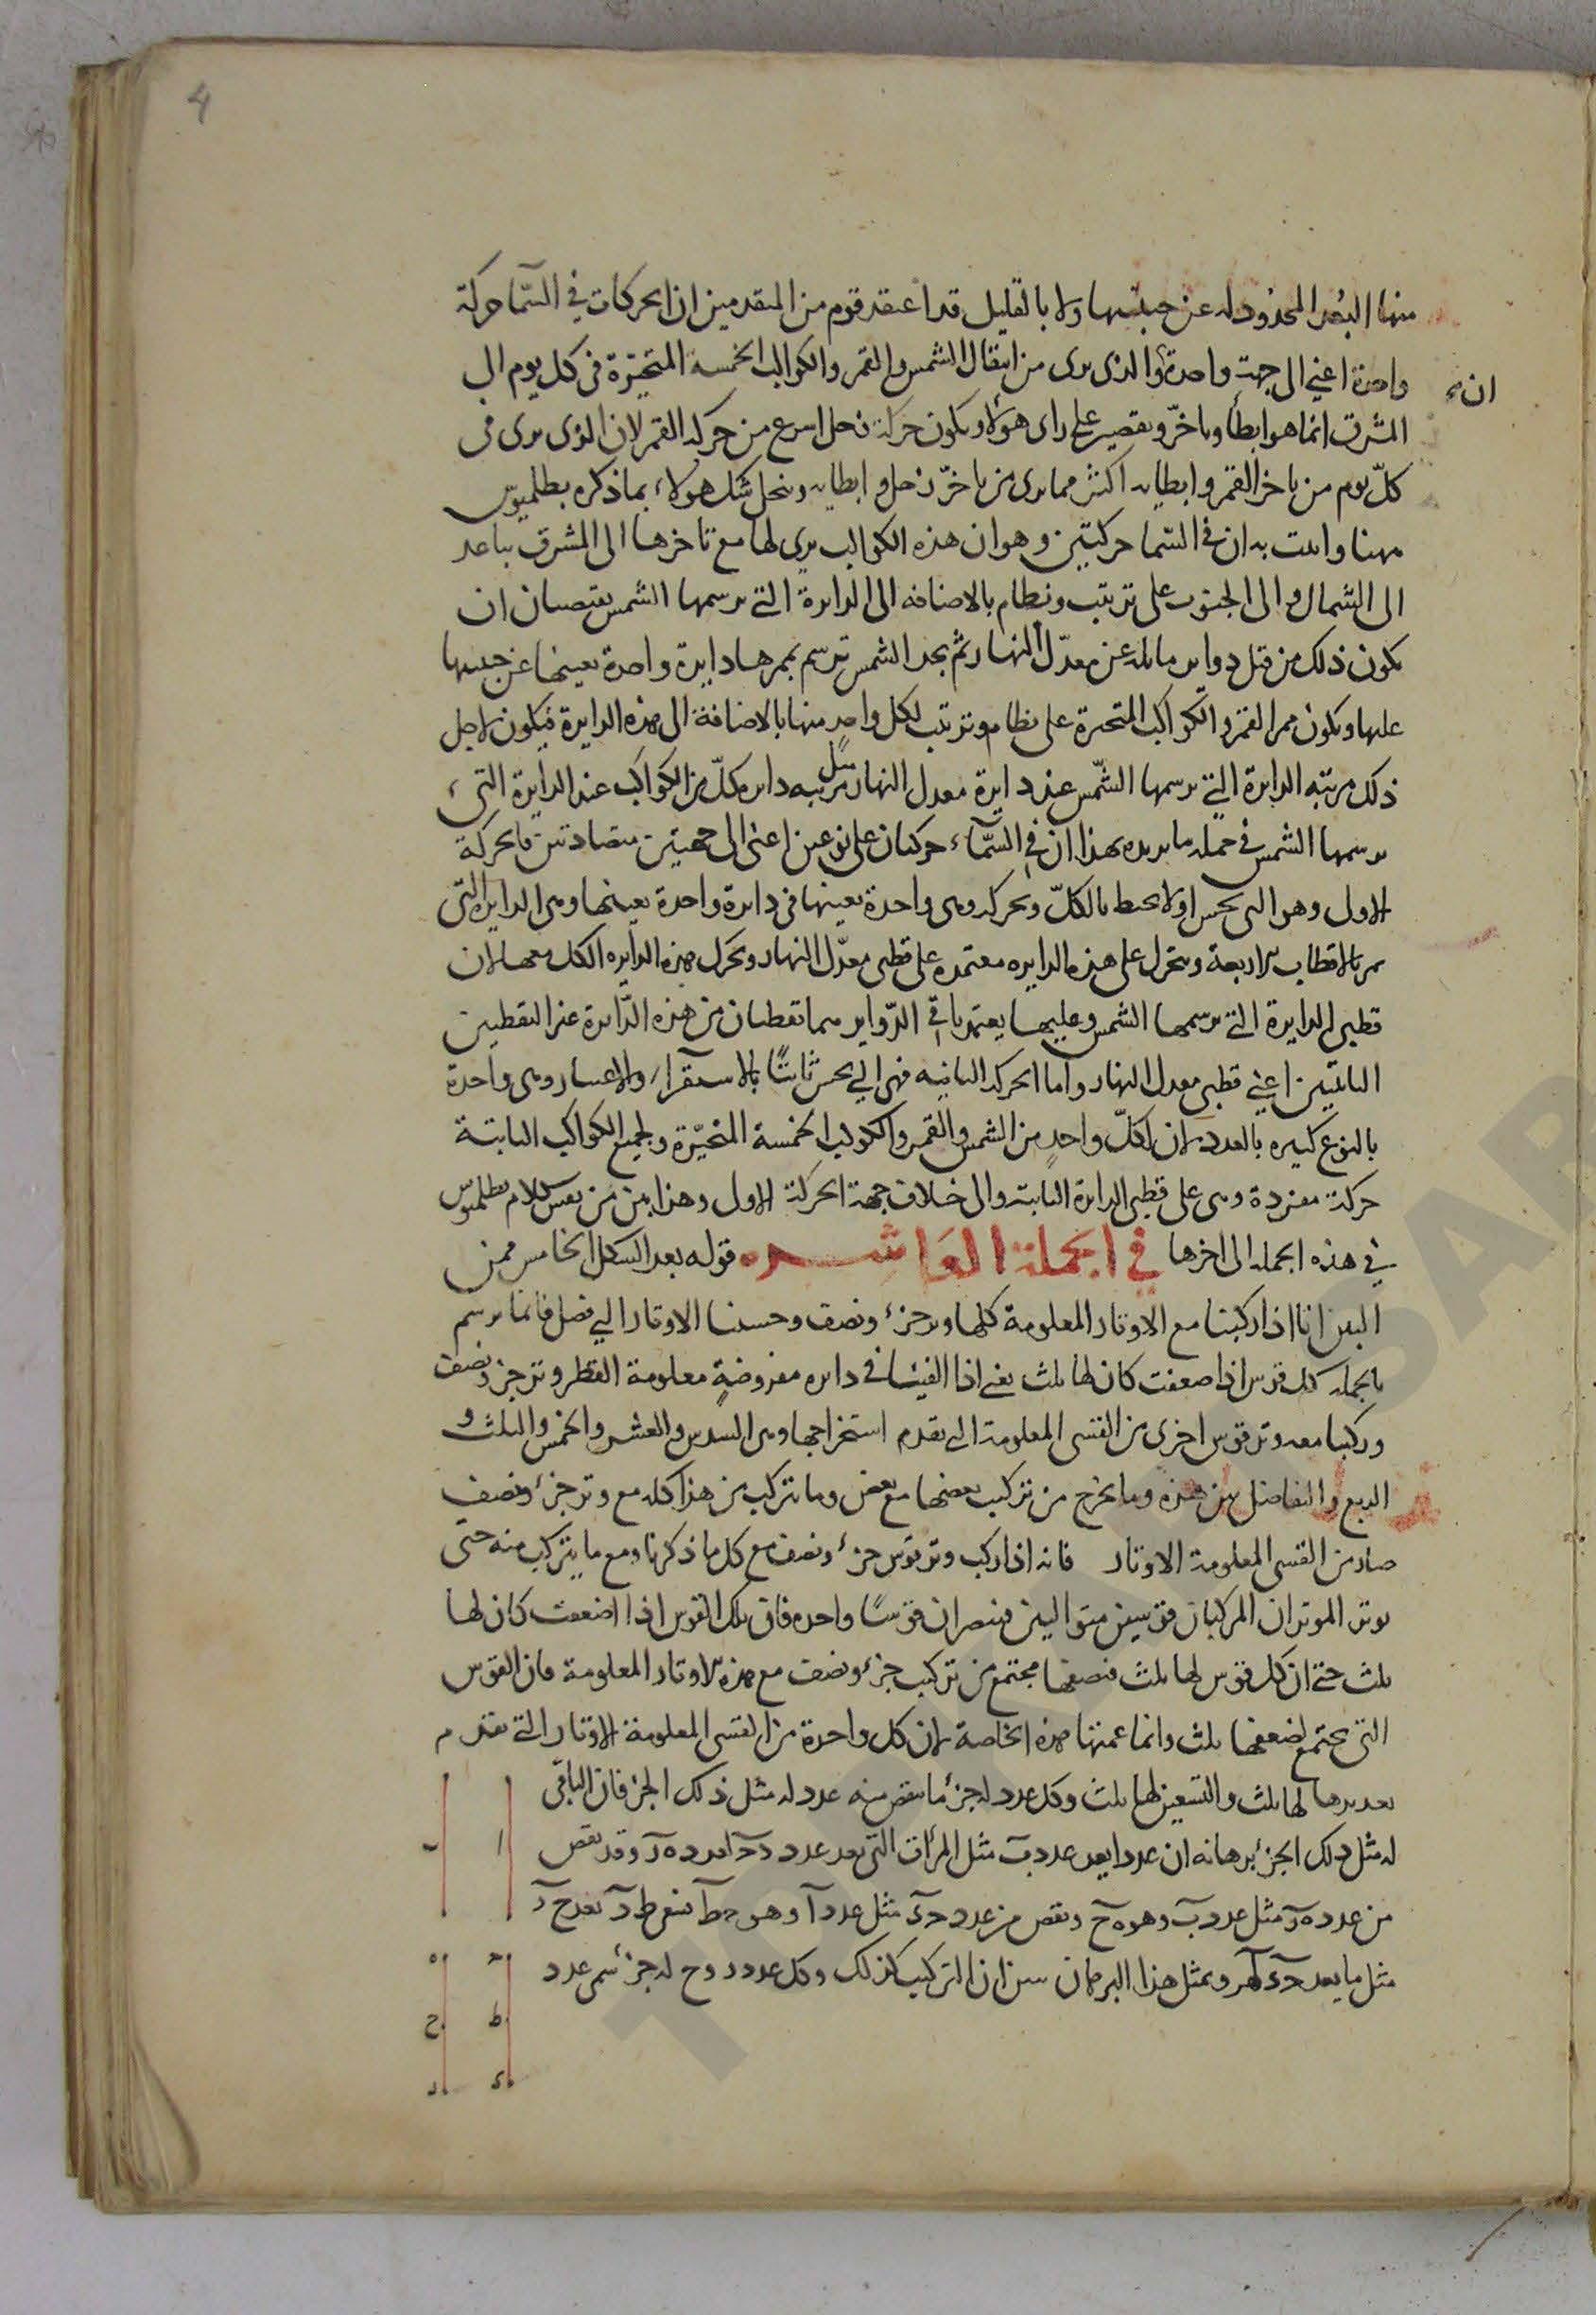 4
منها البعد المحدود له عن جنبتيها ولا بالقليل قد اعتقد قوم من المتقدمين ان الحركات في السما حركة
واحدة اعني الى جهة واحدة والذي يرى من انتقال الشمس والقمر والكواكب الخمسة المتحيرة في كل يوم الى
ان
المشرق انما هو ابطأ وتاخر وتقصير على راى هولا وتكون حركة زحل اسرع من حركة القمر لان الذي يرى في
كل يوم من تاخر القمر وابطايه اكثر مما يرى من تاخر زحل وابطايه وينحل شك هولاء بما ذكره بطلميوس
ههنا واثبت به ان في السما حركتين وهو ان هذه الكواكب يرى لها مع تاخرها الى المشرق تباعد
الى الشمال والى الجنوب على ترتيب ونظام بالاضافة الى الدايرة التي ترسمها الشمس يقتضيان ان
يكون ذلك من قبل دواير مايلة عن معدل النهار ثم نجد الشمس ترسم بممرها دايرة واحدة بعينها عن جنبيها
عليها ويكون ممر القمر والكواكب المتحيرة على نظام وترتيب لكل واحد منها بالاضافة الى هذه الدايرة فيكون لاجل
ذلك مرتبة الدايرة التي ترسمها الشمس عند دايرة معدل النهار مثل مرتبة دايرة كل من الكواكب عند الدايرة التي
ترسمها الشمس في جملة ما يريده بهذا ان في السماء حركتان على نوعين اعني الى جهتين متضادتين فالحركة
الاولى وهو التي تحس اولا تحيط بالكل وتحركه وهى واحدة بعينها في دايرة واحدة بعينها وهى الدايرة التي
تمر بالاقطاب الاربعة وتتحرك على هذه الدايره معتمده على قطبى معدل النهار وتحرك هذه الدايره الكل معها لان
قطبى الدايرة التي ترسمها الشمس وعليهما يعتمد باقي الدواير هما نقطتان من هذه الدايرة عند النقطتين
الثابتتين اعني قطبى معدل النهار واما الحركة الثانيه فهى التي تحس ثانيًا بالاستقراء والاعتبار وهى واحدة
بالنوع كثيره بالعدد لان لكل واحد من الشمس والقمر والكواكب الخمسة المتحيرة ولجميع الكواكب الثابتة
حركة مفردة وهى على قطبى الدايرة الثابتة والى خلاف جهة الحركة الاولى وهذا بين من نفس كلام بطلميوس
في هذه الجملة الى اخرها في الجملة العاشره قوله بعد الشكل الخامس فمن
البين انا اذا ركبنا مع الاوتار المعلومة كلها وتر جزء ونصف وحسبنا الاوتار التي فضل فانما نرسم
بالجملة كل قوس اذا ضعفت كان لها ثلث يعني اذا الفينا في دايره مفروضة معلومة القطر وتر جزء ونصف
وركبنا معه وتر قوس اخرى من القسى المعلومة التي تقدم استخراجها وهى السدس والعشر والخمس والثلث و
الربع والتفاضل بين هذه وما يخرج من تركيب بعضها مع بعض وما تتركب من هذا كله مع وتر جزء ونصف
صار من القسى المعلومة الاوتار فانه اذا ركب وتر قوس جزء ونصف مع كل ما ذكرنا ومع ما يتركب منه حتى
يوتر الموتران المركبان قوسين متواليتين فيصيران قوسًا واحده فان تلك القوس اذا اضعفت كان لها
ثلث حتى ان كل قوس لها ثلث فنصفها مجتمع من تركيب جزء ونصف مع هذه الاوتار المعلومة فان القوس
التي يجتمع لضعفها ثلث وانما عمتها هذه الخاصة لان كل واحدة من القسى المعلومة الاوتار التي تقدم
تعديدها لها ثلث والتسعين لها ثلث وكل عدد له جزء ما نقص منه عدد له مثل ذلك الجزء فان الباقى
له مثل ذلك الجزء برهانه ان عدد ا يعد عدد ب مثل المرات التي يعد عدد وقد نقص
من عدد مثل عدد ب وهو ونقص من عدد مثل عدد ا وهو
مثل ما يعد وبمثل هذا البرهان تبين ان التركيب كذلك وكل عدد زوج له جزء سمى عدد
ا
ب
ح
ه
ط
ح
ى
د